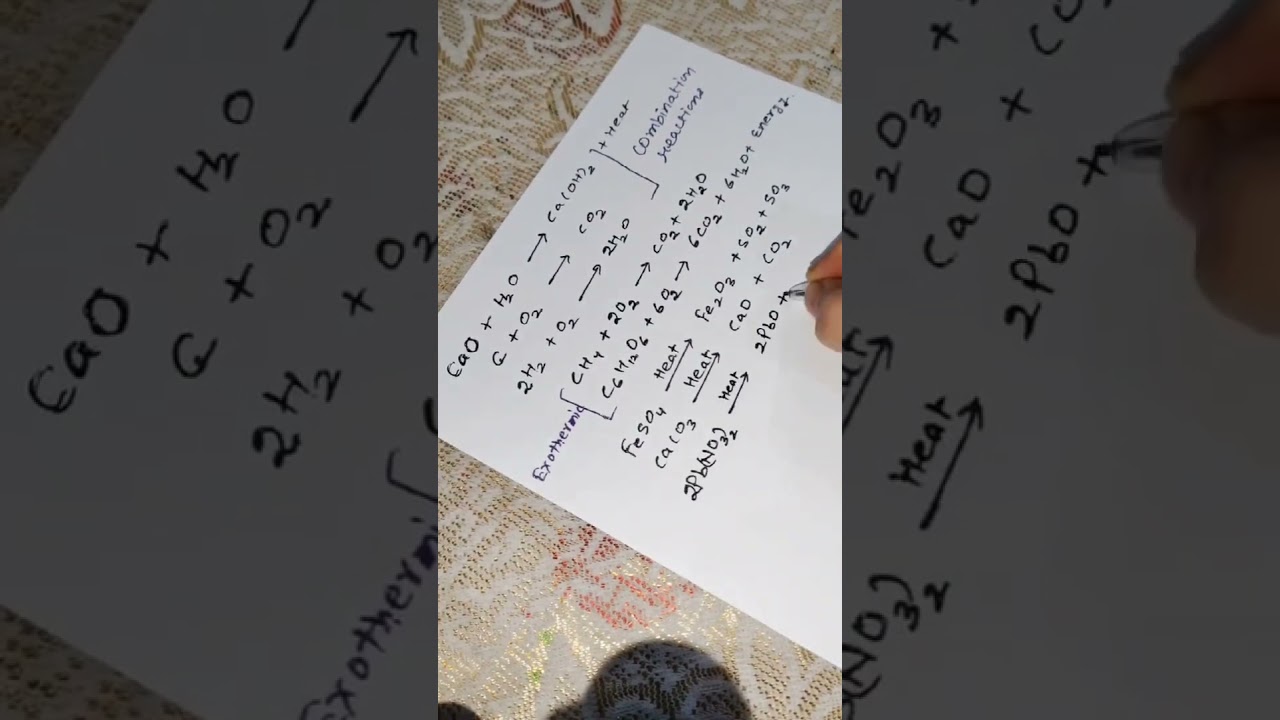 CaO + H₂O → Ca(OH)₂ + Heat
C + O₂ → CO₂
2H₂ + O₂ → 2H₂O
Combination
reactions
Exothermic
CH₄ + 2O₂ → CO₂ + 2H₂O
C₆H₁₂O₆ + 6O₂ → 6CO₂ + 6H₂O + Energy.
FeSO₄ Heat → Fe₂O₃ + SO₂ + SO₃
CaCO₃ Heat → CaO + CO₂
2Pb(NO₃)₂ Heat → 2PbO +